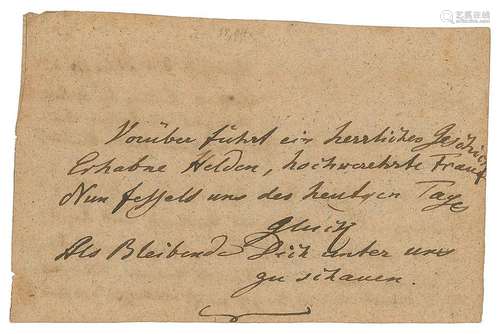 Vorüber führt ein herrliches Geschick
Erhabne Helden, hochverehrte Frauen
Nun fesselt uns des heutgen Tags
Glück
Als Bleibende Dich unter uns
zu schauen.